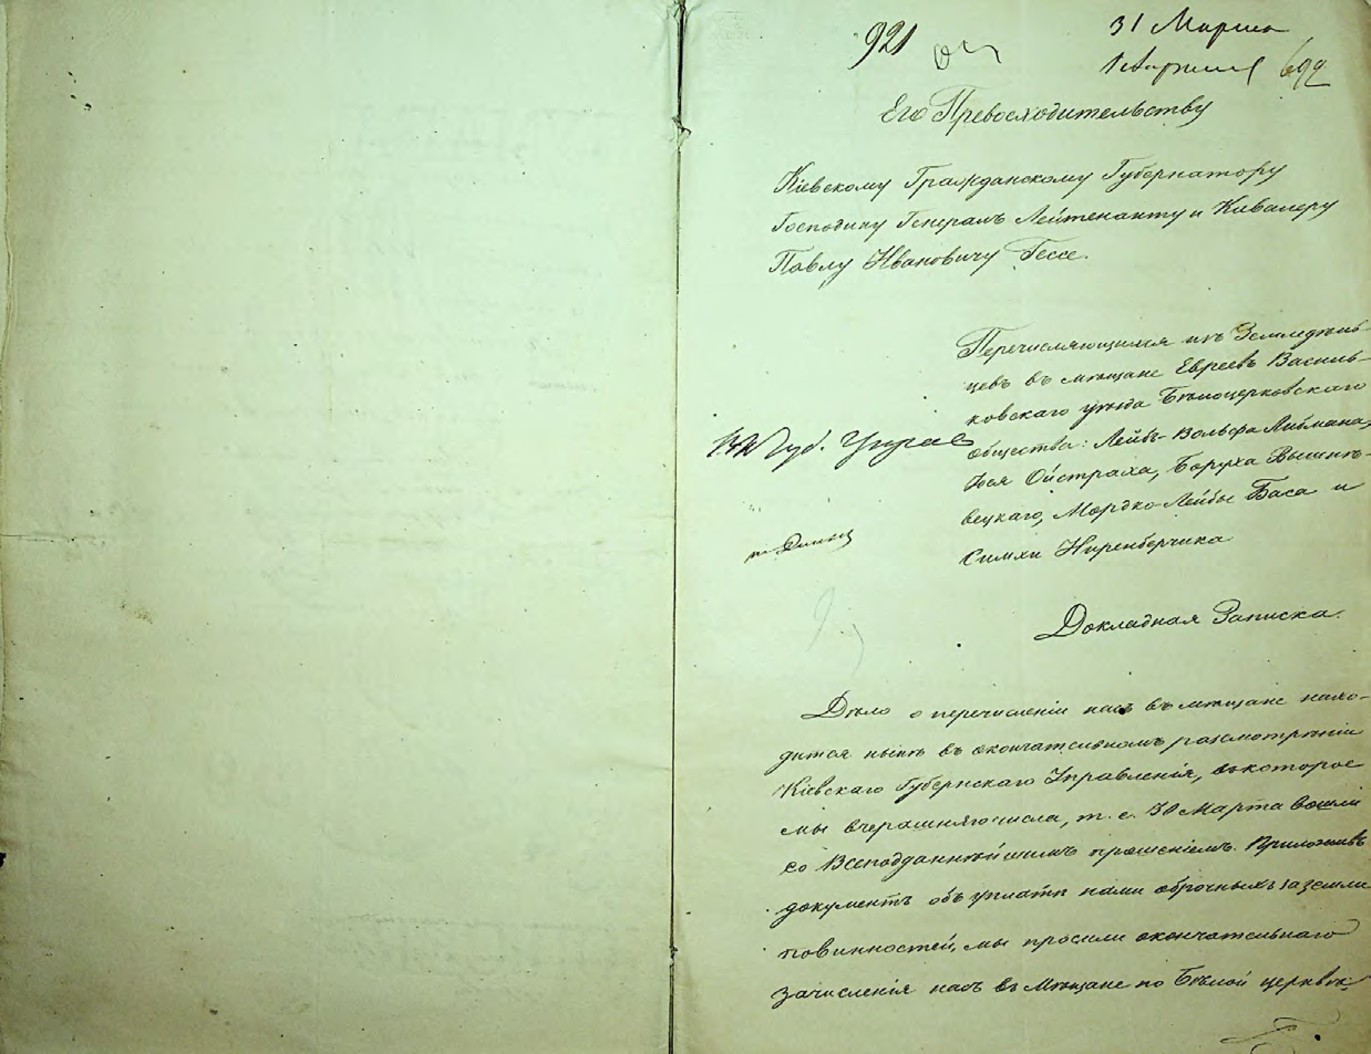 921
31 Марта
1 Апреля 699
Его Превосходительству
Кіевскому Гражданскому Губернатору
Господину Генералъ Лейтенанту и Кавалеру
Павлу Ивановичу Гессе.
Перечисляющихся изъ Земледѣль-
цевъ въ мѣщане Евреевъ Василь-
ковскаго уѣзда Бѣлоцерковскаго
общества: Лейбы-Вольфа Либмана,
Іося Ойстраха, Боруха Вышне-
вецкаго, Мордко-Лейбы Баса и
Симхи Ниренберчика
Губ.
Докладная Записка.
Дѣло о перечисленіи насъ въ мѣщане нахо-
дится нынѣ въ окончательномъ разсмотрѣніи
Кіевскаго Губернскаго Управленія, въ которое
мы вчерашняго числа, т. е. 30 Марта вошли
со Всеподданнѣйшимъ прошеніемъ. Приложивъ
документъ объ уплатѣ нами оброчныхъ за земли
повинностей, мы просили окончательнаго
зачисленія насъ въ Мѣщане по Бѣлой церквѣ.